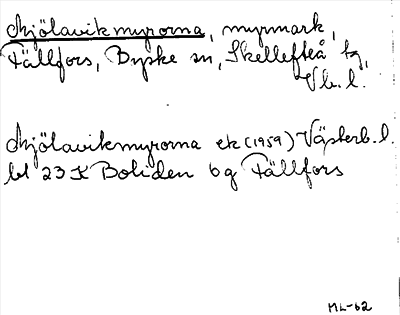 Mjölavikmyrorna, myrmark,
Fällfors, Byske sn, Skellefteå tg,
Vb. l.
Mjölavikmyrorna ek (1959) Västerb. l.
bl 23 K Boliden 6 g Fällfors
ML-62